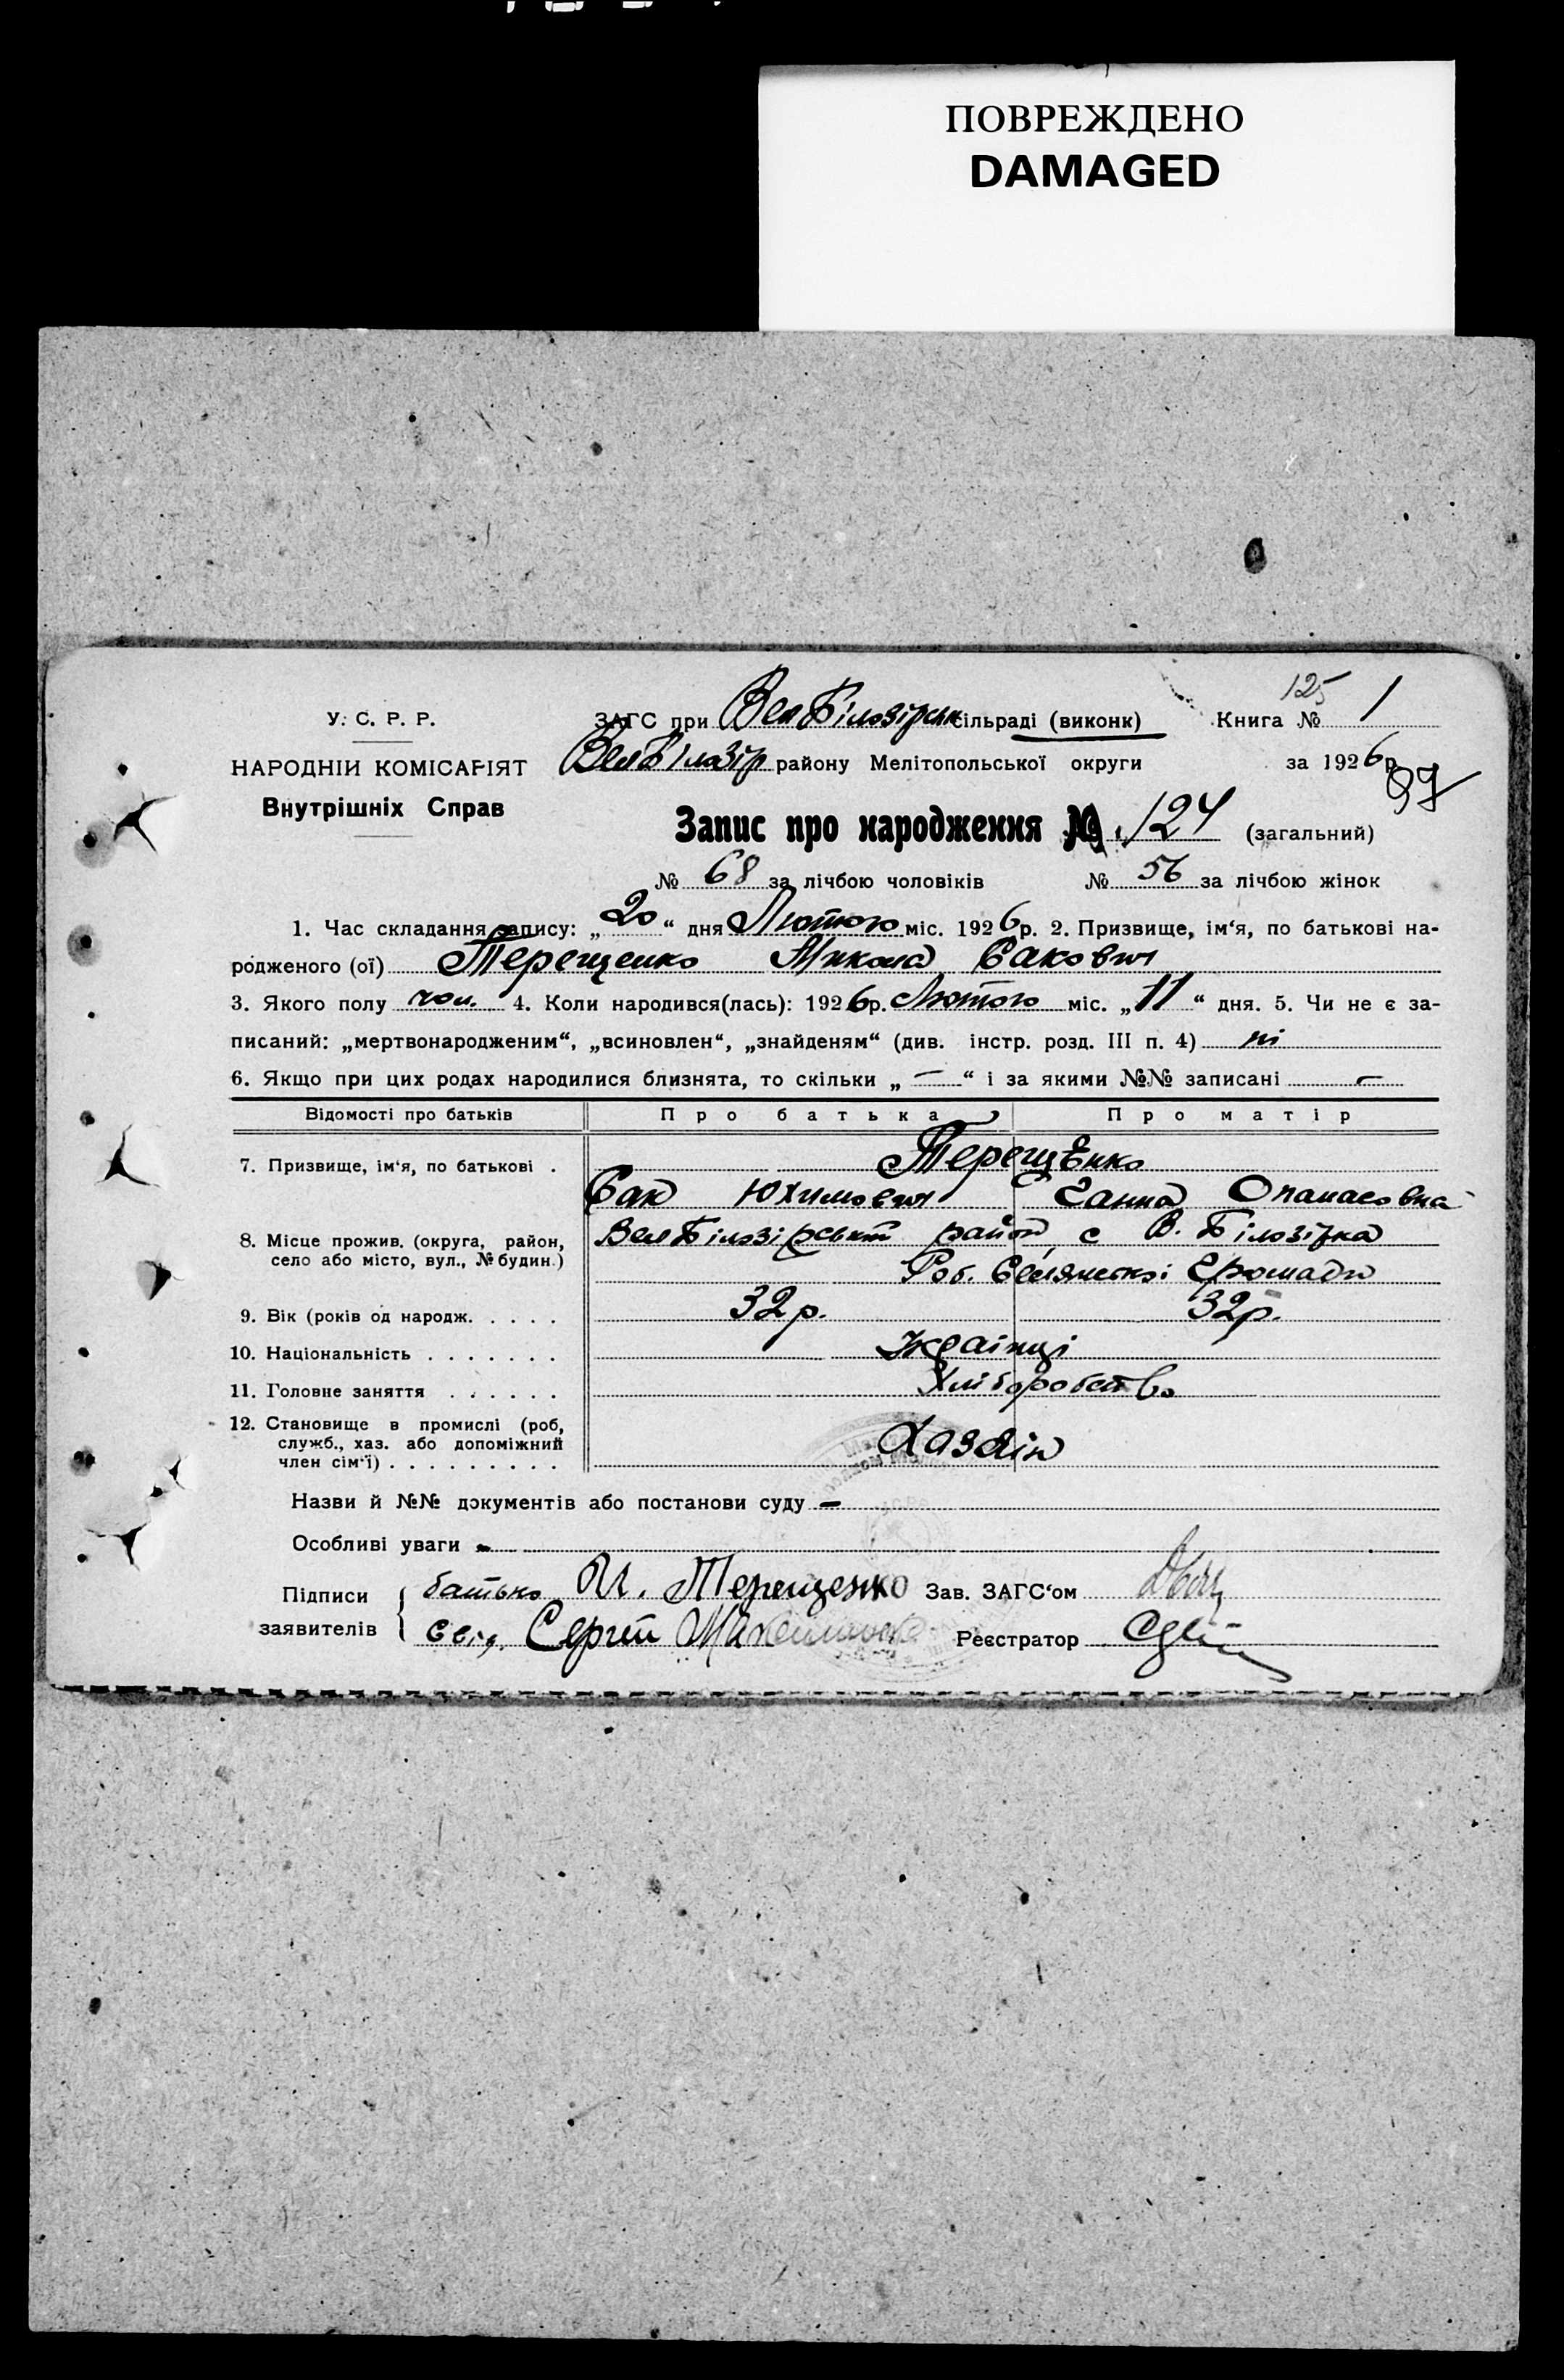 ПОВРЕЖДЕНО
DAMAGED
125
У. С. Р. Р.
ЗАГС при Вел Білозірськ сільраді (виконк) Книга № 1
НАРОДНІЙ КОМІСАРІЯТ
Вел Білозір району Мелітопольської округи за 1926 р.
97
Внутрішніх Справ
Запис про народження № 124 (загальний)
№ 68 за лічбою чоловіків № 56 за лічбою жінок
1. Час складання запису: „20“ дня Лютого міс. 1926 р. 2. Призвище, ім‘я, по батькові на-
родженого (ої) Терещенко Микола Сакович
3. Якого полу чол. 4. Коли народився(лась): 1926 р. Лютого міс. „11“ дня. 5. Чи не є за-
писаний: „мертвонародженим“, „всиновлен“, „знайденям“ (див. інстр. розд. III п. 4) ні
6. Якщо при цих родах народилися близнята, то скільки „—“ і за якими №№ записані —
Відомості про батьків Про батька Про матір
7. Призвище, ім‘я, по батькові . Терещенко
Сак Юхимович Ганна Опанасовна
8. Місце прожив. (округа, район, Вел Білозірський район с В. Білозірка
село або місто, вул., № будин.) Роб. Селянської Громади
9. Вік (років од народж. . . . . 32 р. 32 р.
10. Національність . . . . . . . Українці
11. Головне заняття . . . . . . Хліборобство
12. Становище в промислі (роб,
служб., хаз. або допоміжний Хазяїн
член сім‘ї) . . . . . . . . .
Назви й №№ документів або постанови суду —
Особливі уваги -
Підписи батько Терещенко Зав. ЗАГС‘ом
заявителів свід. Сергій Реєстратор